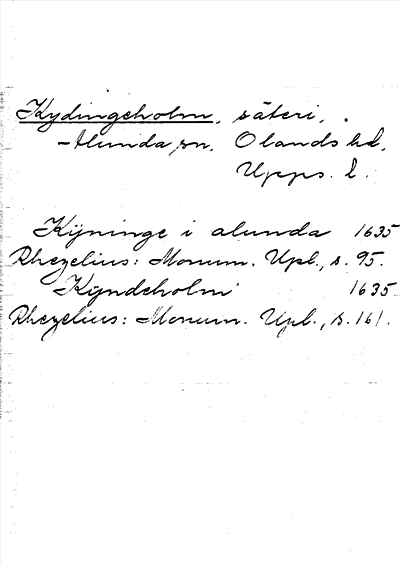 Kydingeholm, säteri,
Alunda sn, Olands hd,
Upps. l.
Kijninge i alunda 1635
Rhezelius: Monum. Upl., s. 95.
Kijndeholm 1635
Rhezelius: Monum. Upl., s. 161.